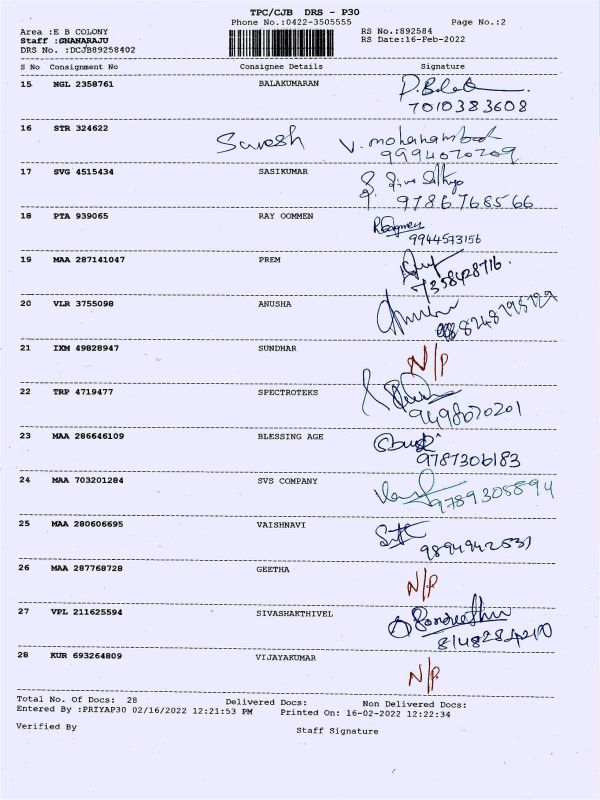 TPC/CJB DRS - P30
Phone No.:0422-3505555 Page No.:2
Area :E B COLONY RS No.:892584
Staff :GNANARAJU RS Date:16-Feb-2022
DRS No. :DCJB89258402
S No Consignment No Consignee Details Signature
15 NGL 2358761 BALAKUMARAN
7010383608
16 STR 324622 Suresh V. mohanambal
9994070209
17 SVG 4515434 SASIKUMAR
9786768566
18 PTA 939065 RAY OOMMEN
9944573156
19 MAA 287141047 PREM
7358428716.
20 VLR 3755098 ANUSHA
21 IXM 49828947 SUNDHAR N/P
22 TRP 4719477 SPECTROTEKS
9498070201
23 MAA 286646109 BLESSING AGE
9787306183
24 MAA 703201284 SVS COMPANY
9789308894
25 MAA 280606695 VAISHNAVI
9894942531
26 MAA 287768728 GEETHA N/P
27 VPL 211625594 SIVASHAKTHIVEL
28 KUR 693264809 VIJAYAKUMAR N/P
Total No. Of Docs: 28 Delivered Docs: Non Delivered Docs:
Entered By :PRIYAP30 02/16/2022 12:21:53 PM Printed On: 16-02-2022 12:22:34
Verified By Staff Signature